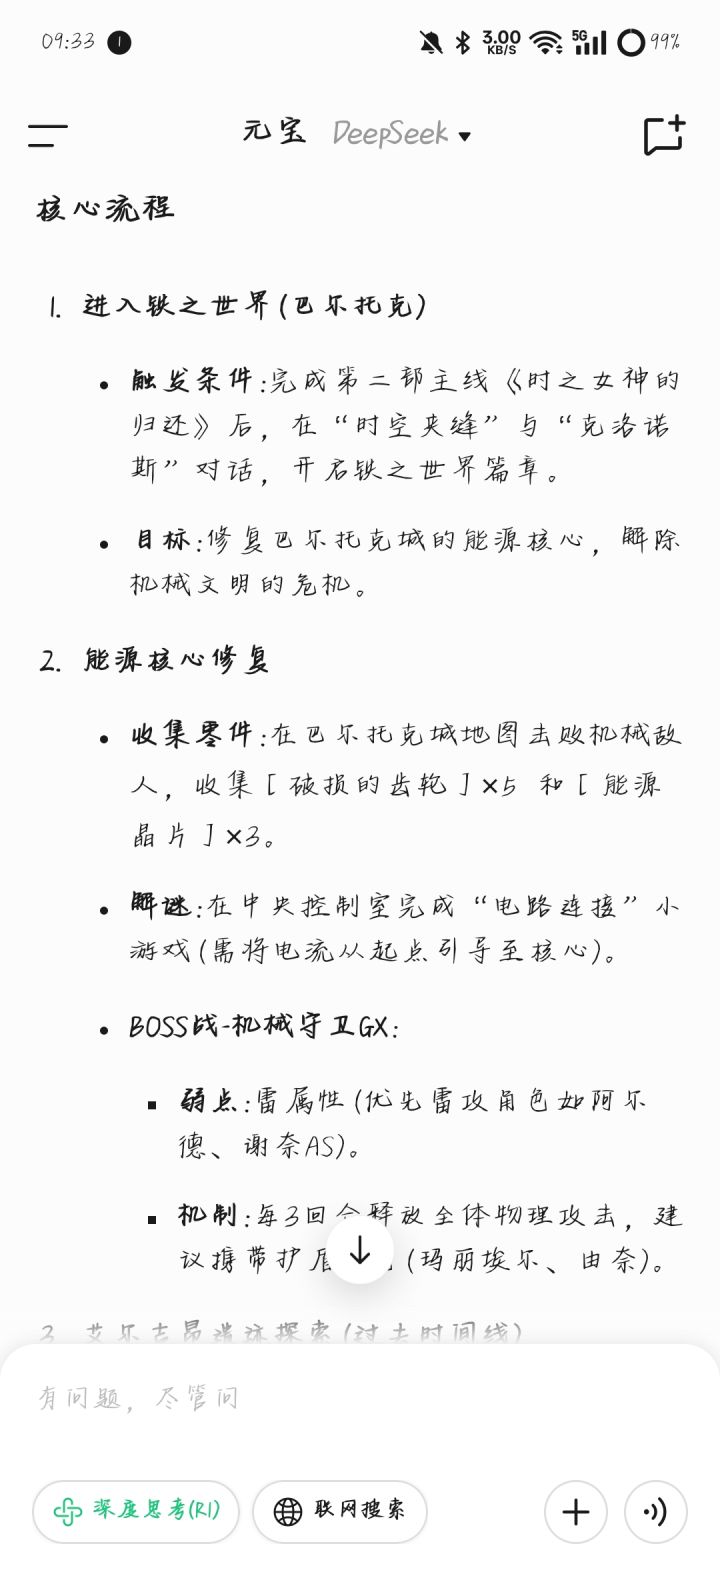 09:33
3.00
KB/S
5G
99%
元宝 DeepSeek
核心流程
1. 进入铁之世界(巴尔托克)
触发条件:完成第二部主线《时之女神的
归还》后，在“时空夹缝”与“克洛诺
斯”对话，开启铁之世界篇章。
目标:修复巴尔托克城的能源核心，解除
机械文明的危机。
2. 能源核心修复
收集零件:在巴尔托克城地图击败机械敌
人，收集[破损的齿轮]×5 和[能源
晶片]×3。
解谜:在中央控制室完成“电路连接”小
游戏(需将电流从起点引导至核心)。
BOSS战-机械守卫GX:
弱点:雷属性(优先雷攻角色如阿尔
德、谢奈AS)。
机制:每3回合释放全体物理攻击，建
议携带护盾 (玛丽埃尔、由奈)。
3. 艾尔吉昂遗迹探索(过去时间线)
有问题，尽管问
深度思考(R1)
联网搜索